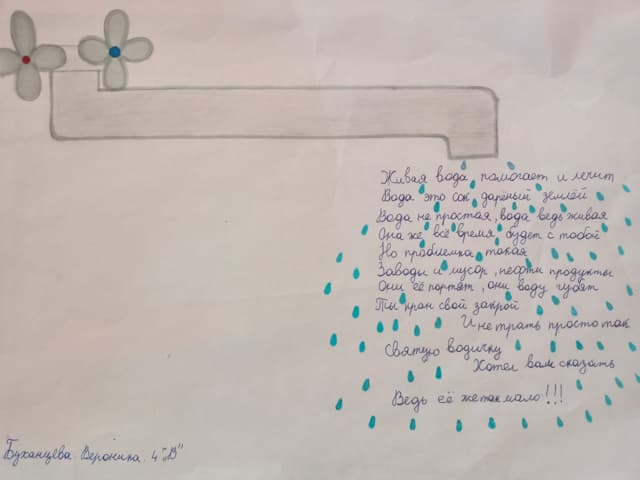 Живая вода помогает и лечит
Вода это сок дарёный землёй
Вода не простая, вода ведь живая
Она же всё время будет с тобой
Но проблемка такая
Заводы и мусор, нефти продукты
Они её портят, они воду губят
Ты кран свой закрой
И не трать просто так
Святую водичку
Хотел вам сказать
Ведь её же так мало!!!
Буханцева Вероника 4 "В"